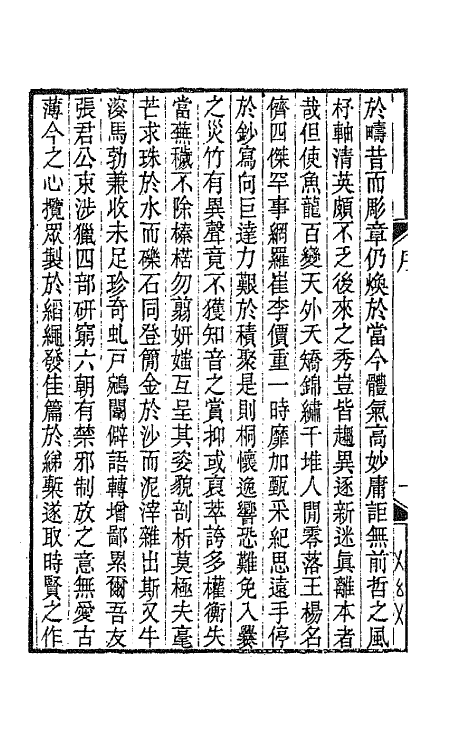 於疇昔而彫章仍煥於當今體氣高妙庸詎無前哲之風
杼軸清英頗不乏後來之秀豈皆趨異逐新迷眞離本者
哉但使魚龍百變天外夭矯錦繡千堆人閒零落王楊名
儕四傑罕事網羅崔李價重一時靡加甄采紀思遠手停
於鈔寫向巨達力艱於積聚是則桐懷逸響恐難免入爨
之災竹有異聲竟不獲知音之賞抑或裒萃誇多權衡失
當蕪穢不除榛楛勿翦妍媸互呈其姿貌剖析莫極夫毫
芒求珠於水而礫石同登簡金於沙而泥滓雜出斯又牛
溲馬勃兼收未足珍奇虬戸鵷闈僻語轉增鄙累爾吾友
張君公束涉獵四部研窮六朝有禁邪制放之意無愛古
薄今之心攬眾製於縚繩發佳篇於綈槧遂取時賢之作
序
一